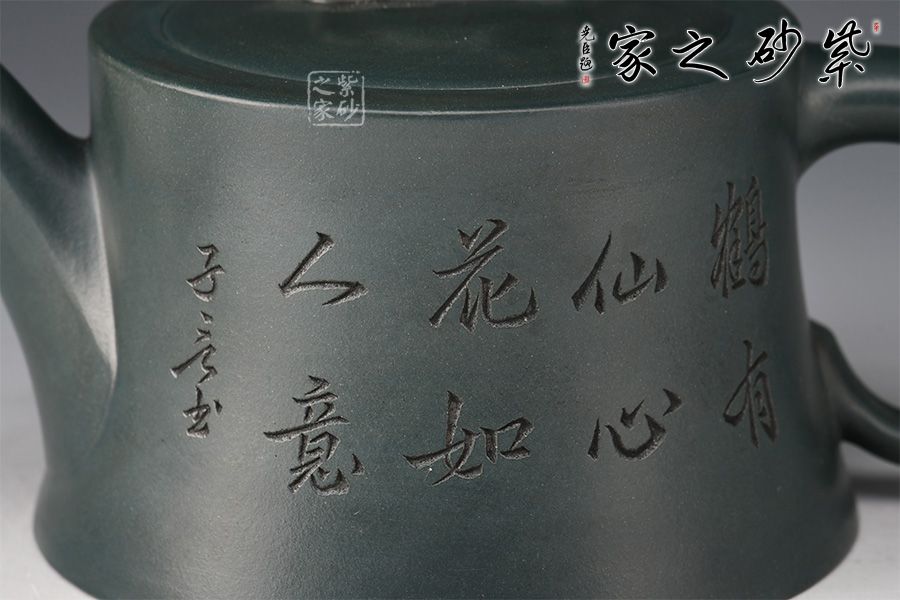 紫砂之家
紫砂之家
鹤有
仙心
花如
人意
子言书